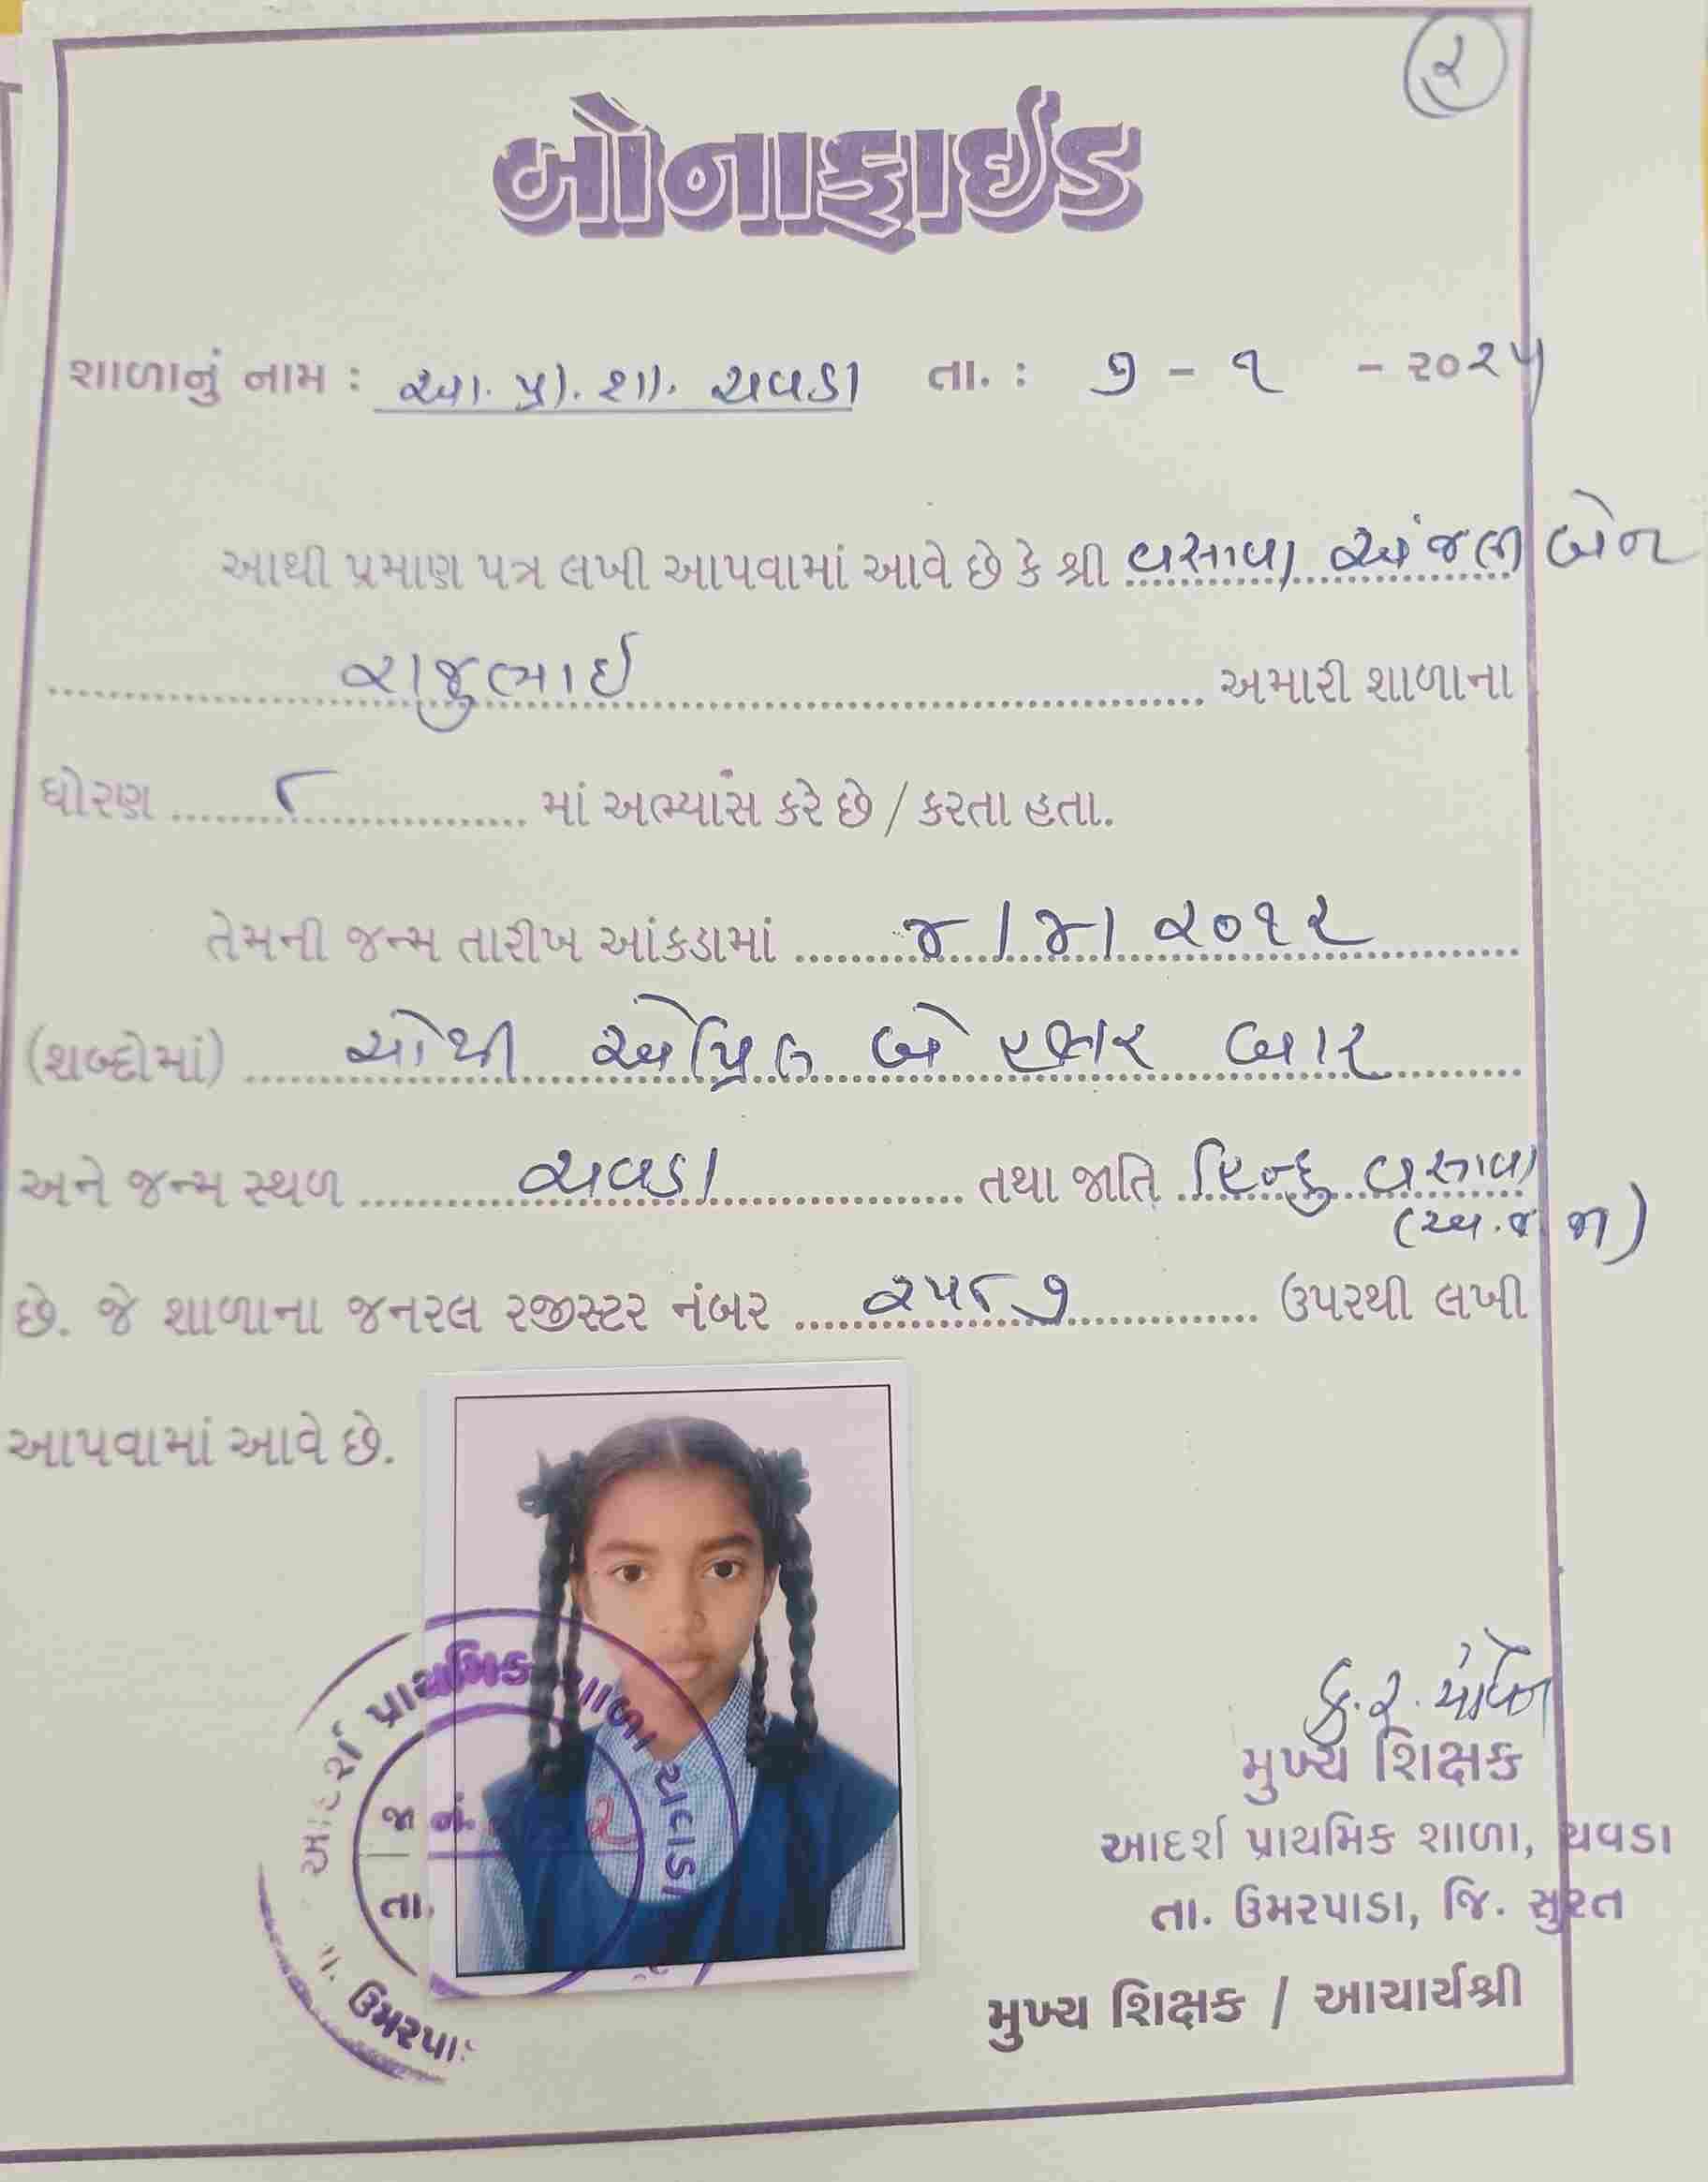 ૨
બોનાફાઈડ
શાળાનું નામ : આ. પ્રા. શા. ચવડા તા. : ૭ - ૧ - ૨૦૨૫
આથી પ્રમાણ પત્ર લખી આપવામાં આવે છે કે શ્રી વસાવા અંજલી બેન
રાજુભાઈ અમારી શાળાના
ધોરણ ૮ માં અભ્યાસ કરે છે / કરતા હતા.
તેમની જન્મ તારીખ આંકડામાં ૪ / ૪ / ૨૦૧૨
(શબ્દોમાં) ચોથી એપ્રિલ બે હજાર બાર
અને જન્મ સ્થળ ચવડા તથા જાતિ હિન્દુ વસાવા
(અ.જ જા)
છે. જે શાળાના જનરલ રજીસ્ટર નંબર ૨૫૮૭ ઉપરથી લખી
આપવામાં આવે છે.
આદર્શ પ્રાથમિક શાળા ચવડા
જા નં. ૨
તા.
ઉમરપા
મુખ્ય શિક્ષક
આદર્શ પ્રાથમિક શાળા, ચવડા
તા. ઉમરપાડા, જિ. સુરત
મુખ્ય શિક્ષક / આચાર્યશ્રી